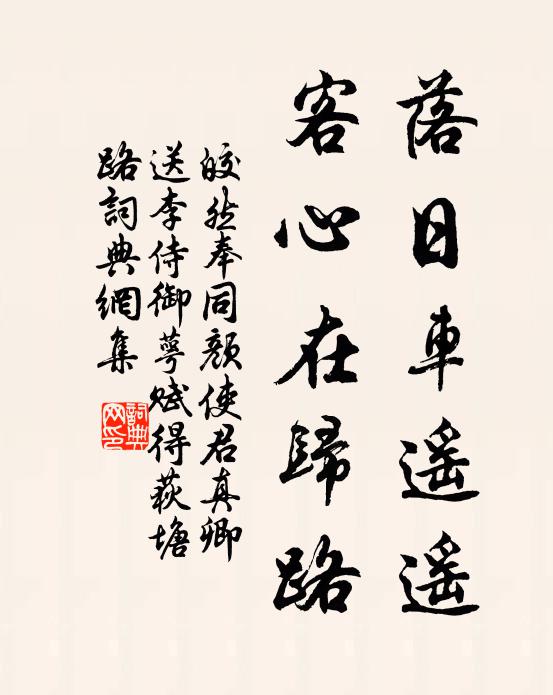 落日車遥遥
客心在歸路
皎然奉同顏使君真卿
送李侍御萼賦得荻塘
路詞典網集
詞典
网印